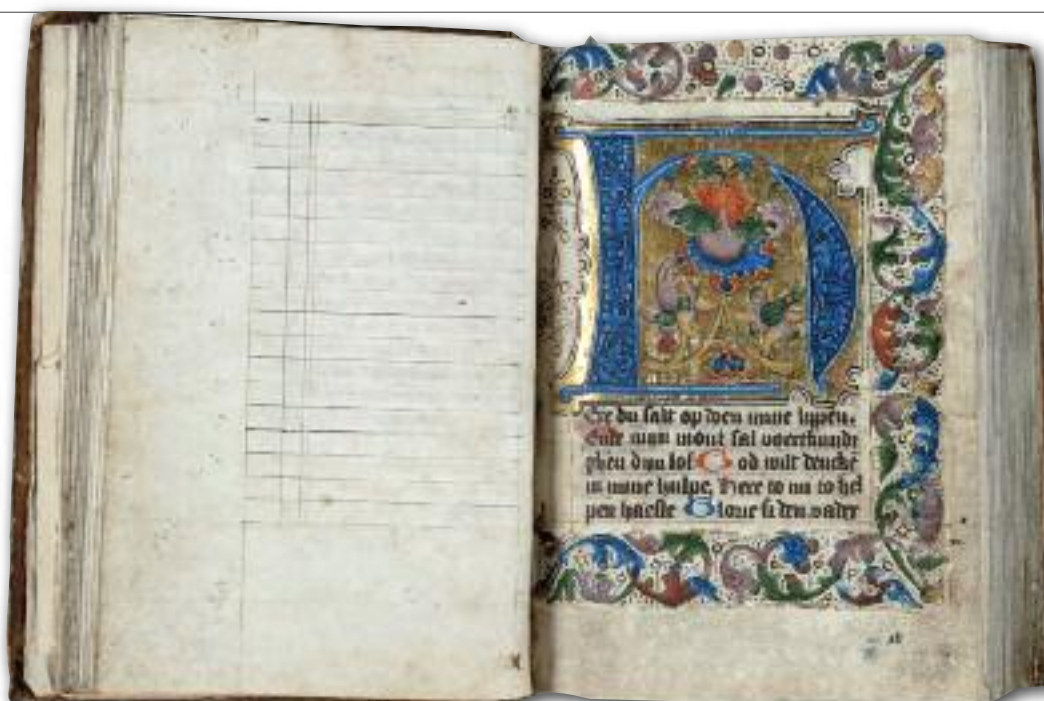 H
Ere du salt op doen mine lippen.
Ende mijn mont sal voerkundi
ghen dijn lof God wilt dencke
in mine hulpe. Here to mi to hel
pen haeste Glorie si den vader